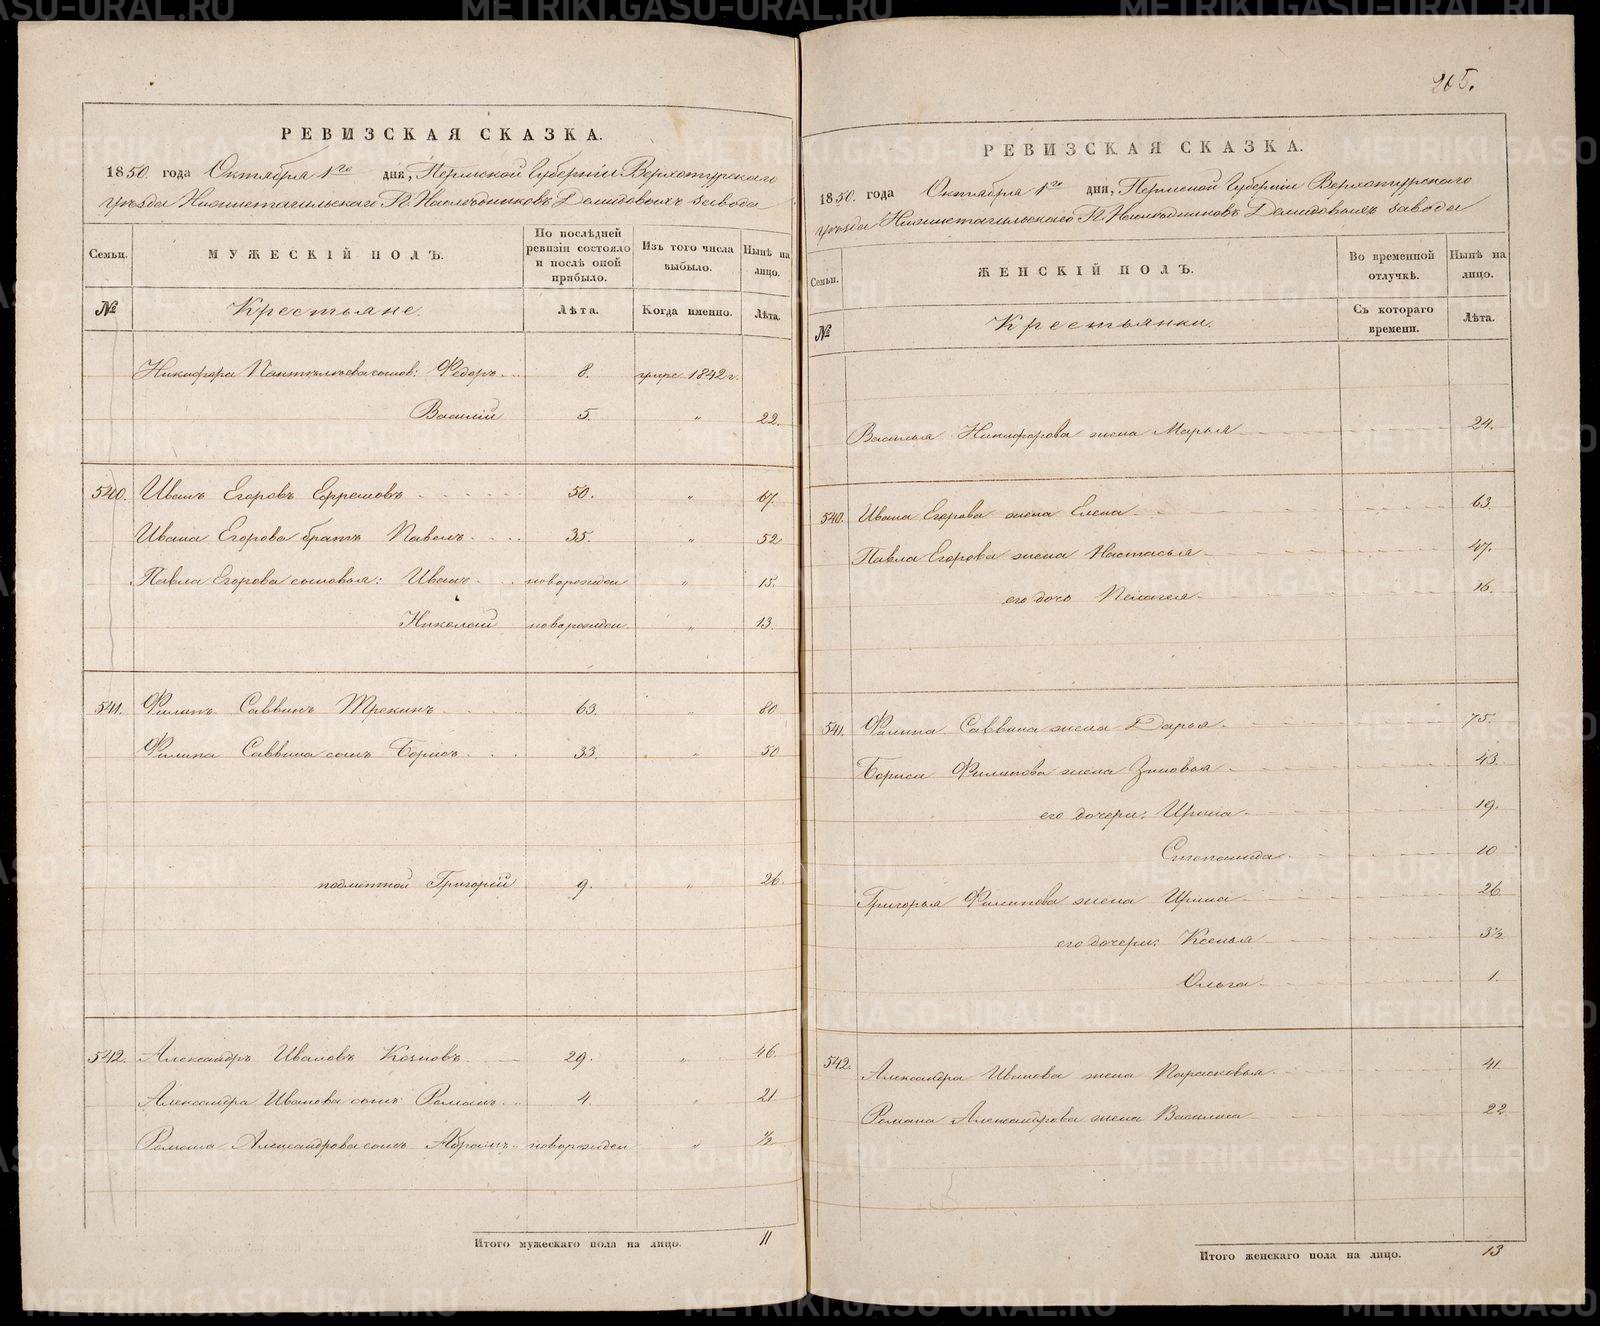 РЕВИЗСКАЯ СКАЗКА.
1850. года Октября 1го дня, Пермской Губернии Верхотурскаго
уѣзда Нижнетагильскаго Г.г. Наслѣдниковъ Демидовыхъ завода
Семьи. МУЖЕСКІЙ ПОЛЪ. По послѣдней ревизіи состояло и послѣ оной прибыло. Изъ того числа выбыло. Нынѣ на лицо.
№ Крестьяне. Лѣта. Когда именно. Лѣта.
Никифора Пантелѣева сынов: Федоръ 8. умре 1842 г.
Василій 5. " 22.
540. Иванъ Егоровъ Ефремовъ 50. " 67.
Ивана Егорова братъ Павелъ 35. " 52
Павла Егорова сыновья: Иванъ новорожден " 15.
Николай новорожден " 13.
541. Филипъ Саввинъ Трекинъ 63. " 80
Филипа Саввина сынъ Борисъ 33. " 50
Григорій 9. " 26.
542. Александръ Ивановъ 29. " 46.
Александра Иванова сынъ Романъ 4. " 21
Романа Александрова сынъ Абрамъ новорожден " 1/2
Итого мужескаго пола на лицо. 11
265.
РЕВИЗСКАЯ СКАЗКА.
1850. года Октября 1го дня, Пермской Губерніи Верхотурскаго
уѣзда Нижнетагильскаго Г.г. Наслѣдниковъ Демидовыхъ завода
Семьи. ЖЕНСКІЙ ПОЛЪ. Во временной отлучкѣ. Нынѣ на лицо.
№ Крестьянки. Съ котораго времени. Лѣта.
Василья Никифорова жена Марья 24.
540. Ивана Егорова жена Елена 63.
Павла Егорова жена Настасья 47.
его дочь Пелагея 16.
541. Филипа Саввина жена Дарья 75.
Бориса Филипова жена Зиновья 43.
его дочери: Ирина 19.
Степанида 10
Григорья Филипова жена Ирина 26
его дочери: Ксенья 3 1/2
Ольга 1.
542. Александра Иванова жена Парасковья 41.
Романа Александрова жена Василиса 22
Итого женскаго пола на лицо. 13
METRIKI.GASO-URAL.RU